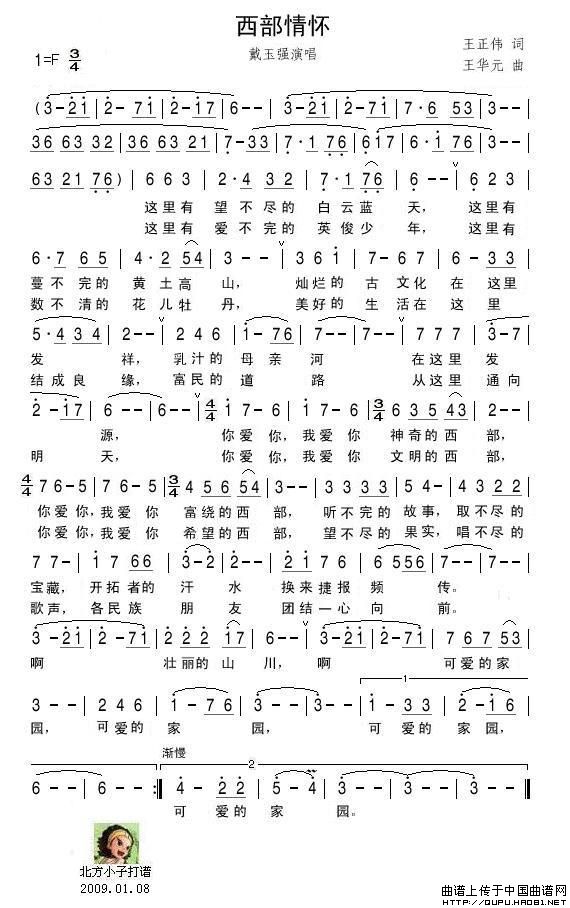 西部情怀
1=F 3/4
戴玉强演唱
王正伟 词
王华元 曲
(3-21|2-71|2-17|6--|3-21|2-71|7·6 53|3--|
36 63 32|36 63 21|7-33|7·1 76|617|6·1 76|3--|
63 21 76)|6 6 3|2·4 32|7·1 76|6--|6 2 3|
这里有 望不尽的 白云蓝 天， 这里有
这里有 爱不完的 英俊少 年， 这里有
6·7 65|4·2 54|3--|3 6 1|7·1 76|6 7 1|
蔓不完的 黄土高 山， 灿烂的 古文化 在 这里
数不清的 花儿牡 丹， 美好的 生活在 这 里
5·4 34|2--|2 4 6|1-76|7-|7--|7 7 7|3-7|
发 祥， 乳汁的 母亲河 在这里 发
结成良 缘， 富民的 道 路 从这里 通向
2-17|6--|6--|4/4 1 7 6-|1 7 6-|3/4 6 3 5 43|2--|
源， 你爱你，我爱你 神奇的西 部，
明 天， 你爱你，我爱你 文明的西 部，
4/4 7 6-5|7 6-5|3/4 4 5 6 54|3--|3 3 3 3|5 4-|4 3 2 2|
你爱你，我爱 你 富绕的西 部， 听不完的 故事， 取不尽的
你爱你，我爱 你 希望的西 部， 望不尽的 果实， 唱不尽的
7 7-|1 7 66|3-2|2--|2 1 7 6|6 5 5 6|7--|7--|
宝藏， 开拓者的 汗 水 换来捷报 频 传。
歌声， 各民族 朋 友 团结一心 向 前。
3-21|2-71|2 2 2 17|6--|3-21|2-71|7 6 7 53|
啊 壮丽的山 川， 啊 可爱的家
1
3--|2 4 6|1-76|3--|3--|1-33|2-21|
园， 可爱的 家 园， 可 爱的 家园，
渐慢
2
6--|6--:|4-22|5-4|3--|3--|3--|
可 爱的 家 园。
北方小子打谱
2009.01.08
曲谱上传于中国曲谱网
HTTP://QUPU.HAO81.NET